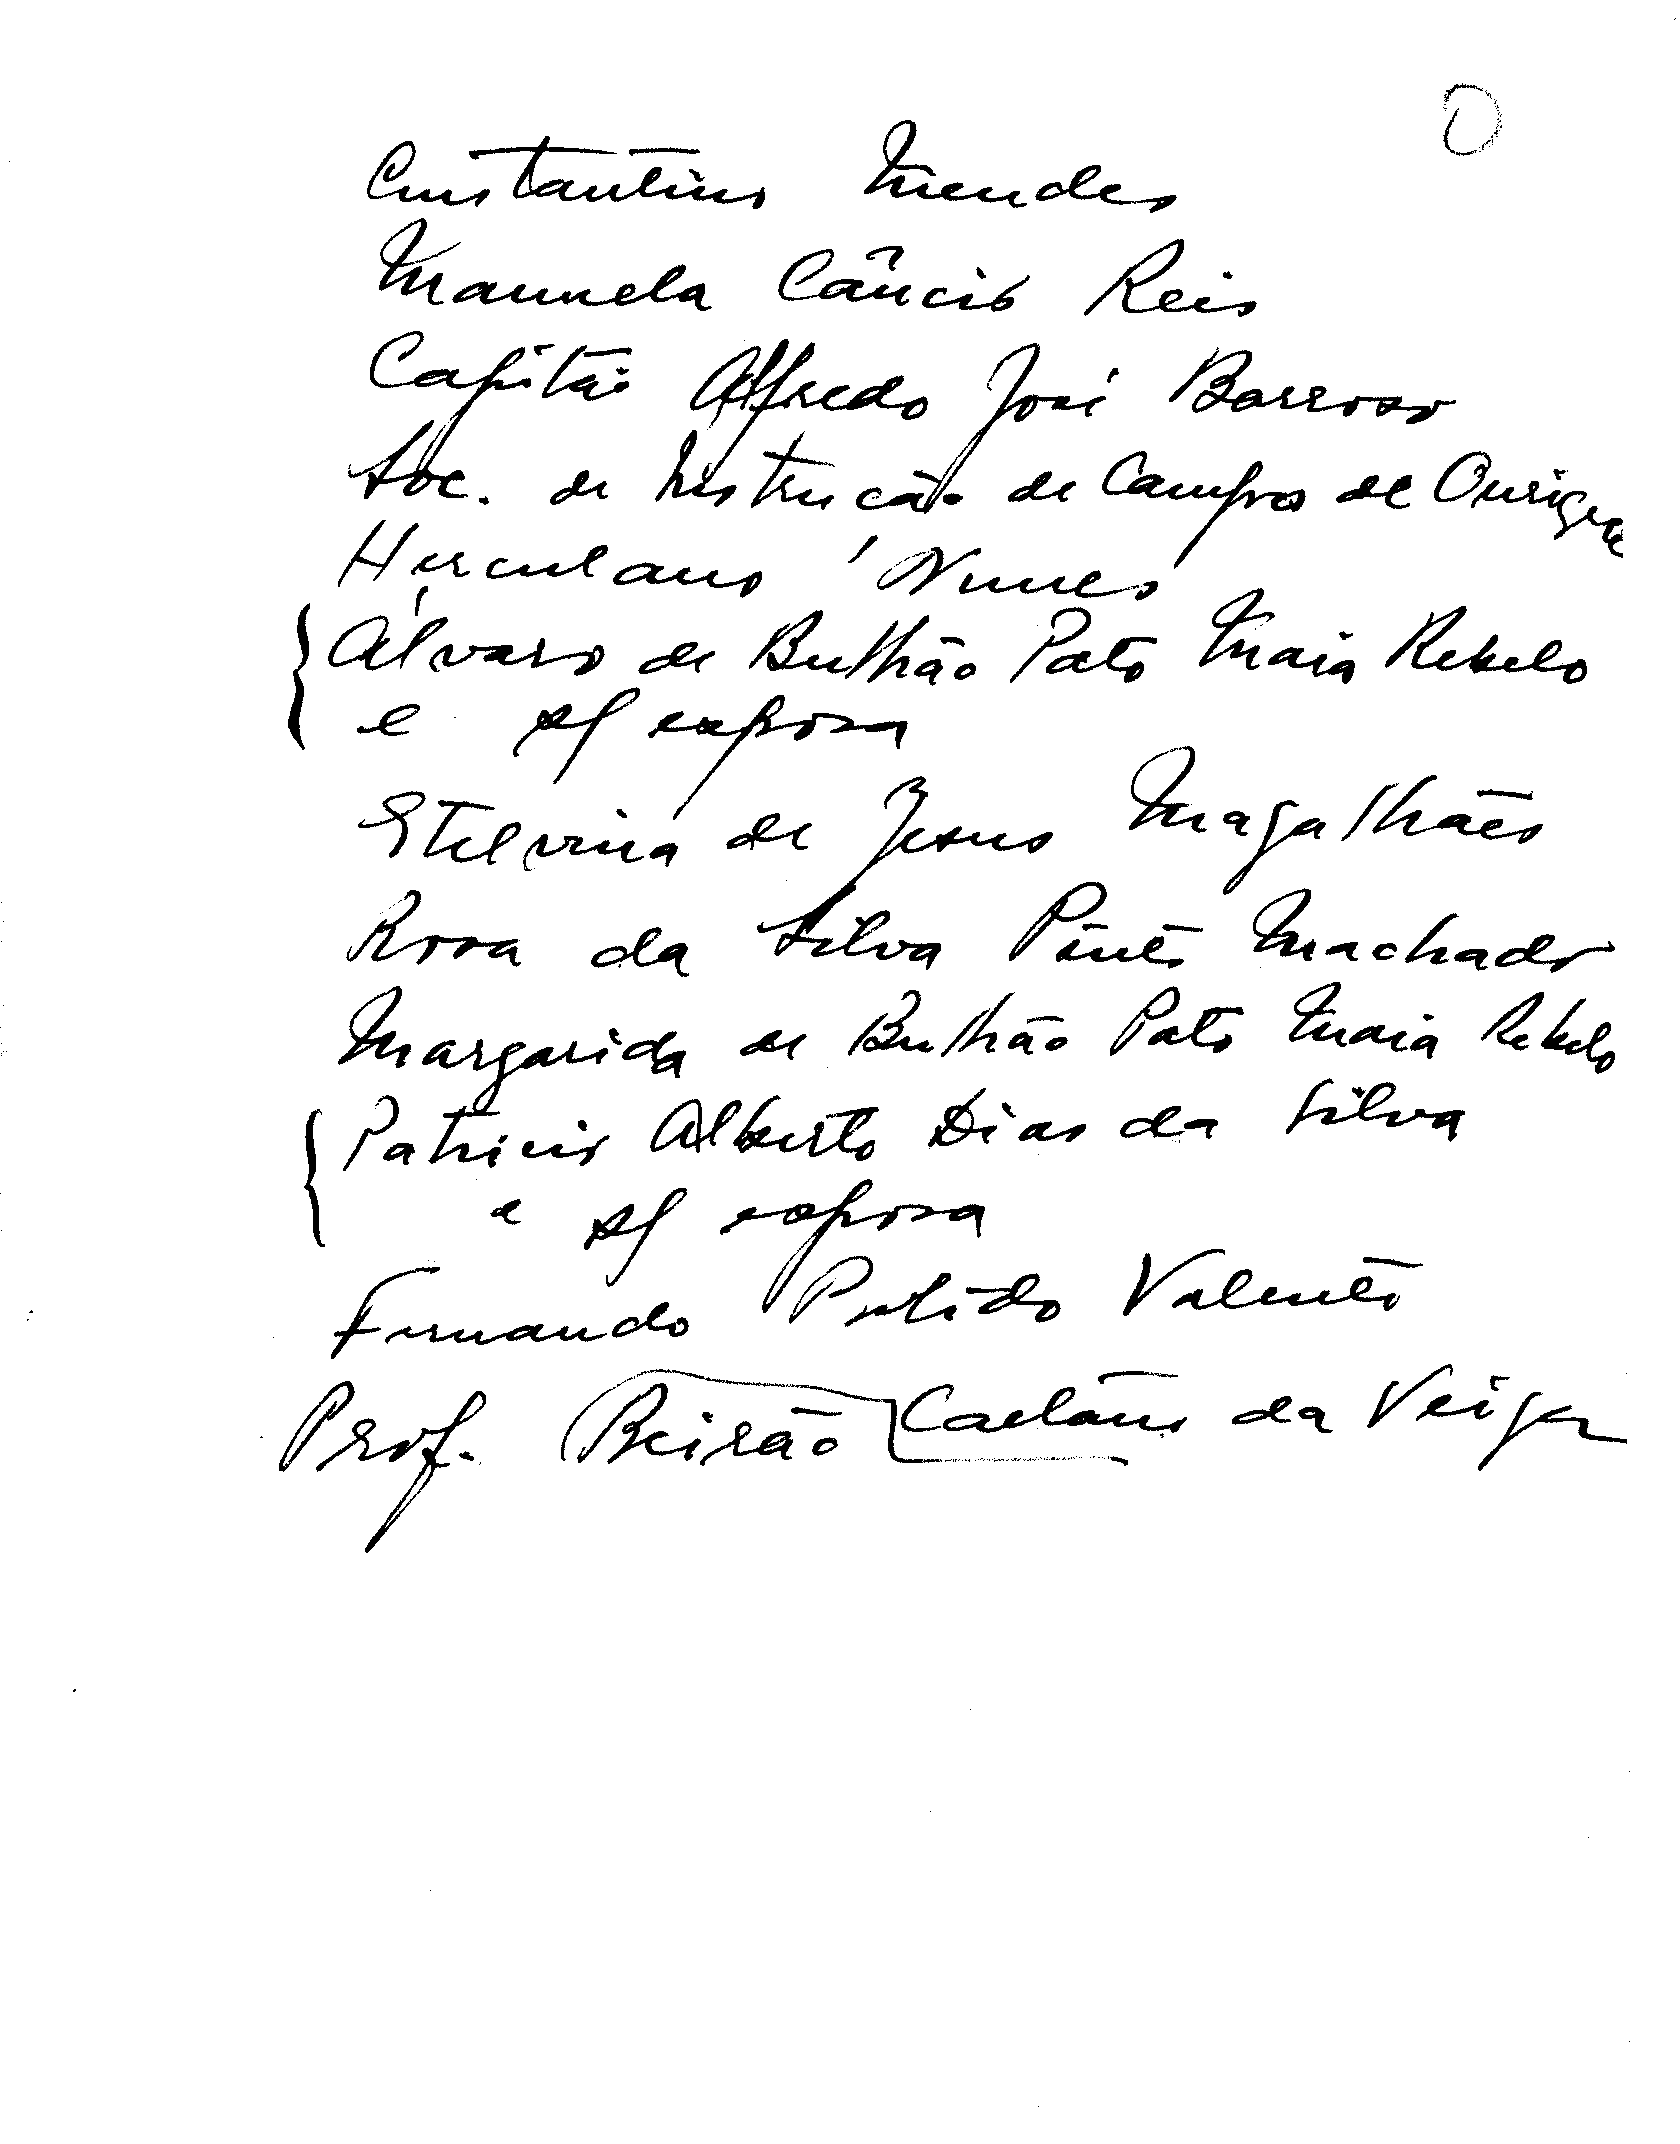 Constantino Mendes
Manuela Câncio Reis
Capitão Alfredo José Barroso
Soc. de Instrução de Campos de Ourique
Herculano Nunes
Álvaro de Bulhão Pato Maia Rebelo
e s/ esposa
Etelvina de Jesus Magalhães
Rosa da Silva Pinto Machado
Margarida de Bulhão Pato Maia Rebelo
Patricio Alberto Dias da Silva
e s/ esposa
Fernando Valente
Prof. Beirão Caetano da Veiga